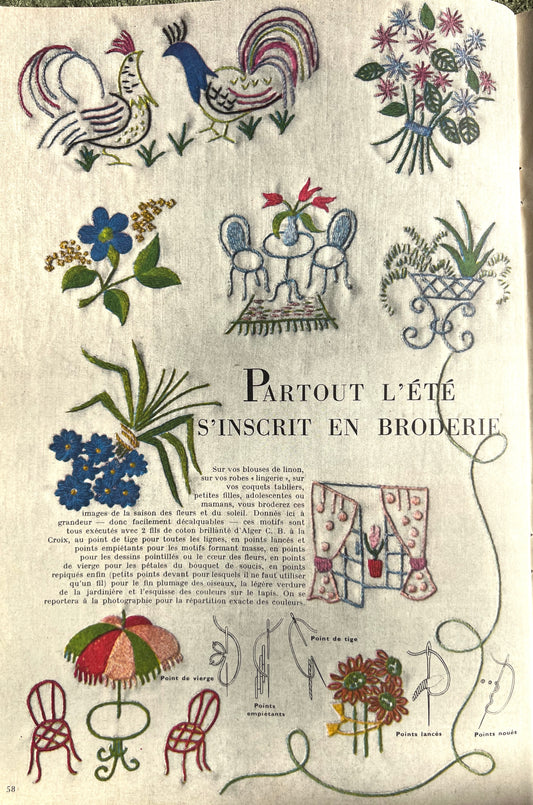 PARTOUT L'ÉTÉ
S'INSCRIT EN BRODERIE
Sur vos blouses de linon,
sur vos robes « lingerie », sur
vos coquets tabliers,
petites filles, adolescentes ou
mamans, vous broderez ces
images de la saison des fleurs et du soleil. Donnés ici à
grandeur — donc facilement décalquables — ces motifs sont
tous exécutés avec 2 fils de coton brillanté d'Alger C. B. à la
Croix, au point de tige pour toutes les lignes, en points lancés et
points empiétants pour les motifs formant masse, en points
pour les dessins pointillés ou le cœur des fleurs, en points
de vierge pour les pétales du bouquet de soucis, en points
repiqués enfin (petits points devant pour lesquels il ne faut utiliser
qu'un fil) pour le fin plumage des oiseaux, la légère verdure
de la jardinière et l'esquisse des couleurs sur le tapis. On se
reportera à la photographie pour la répartition exacte des couleurs.
Point de tige
Point de vierge
Points
empiétants
Points lancés
Points noués
58